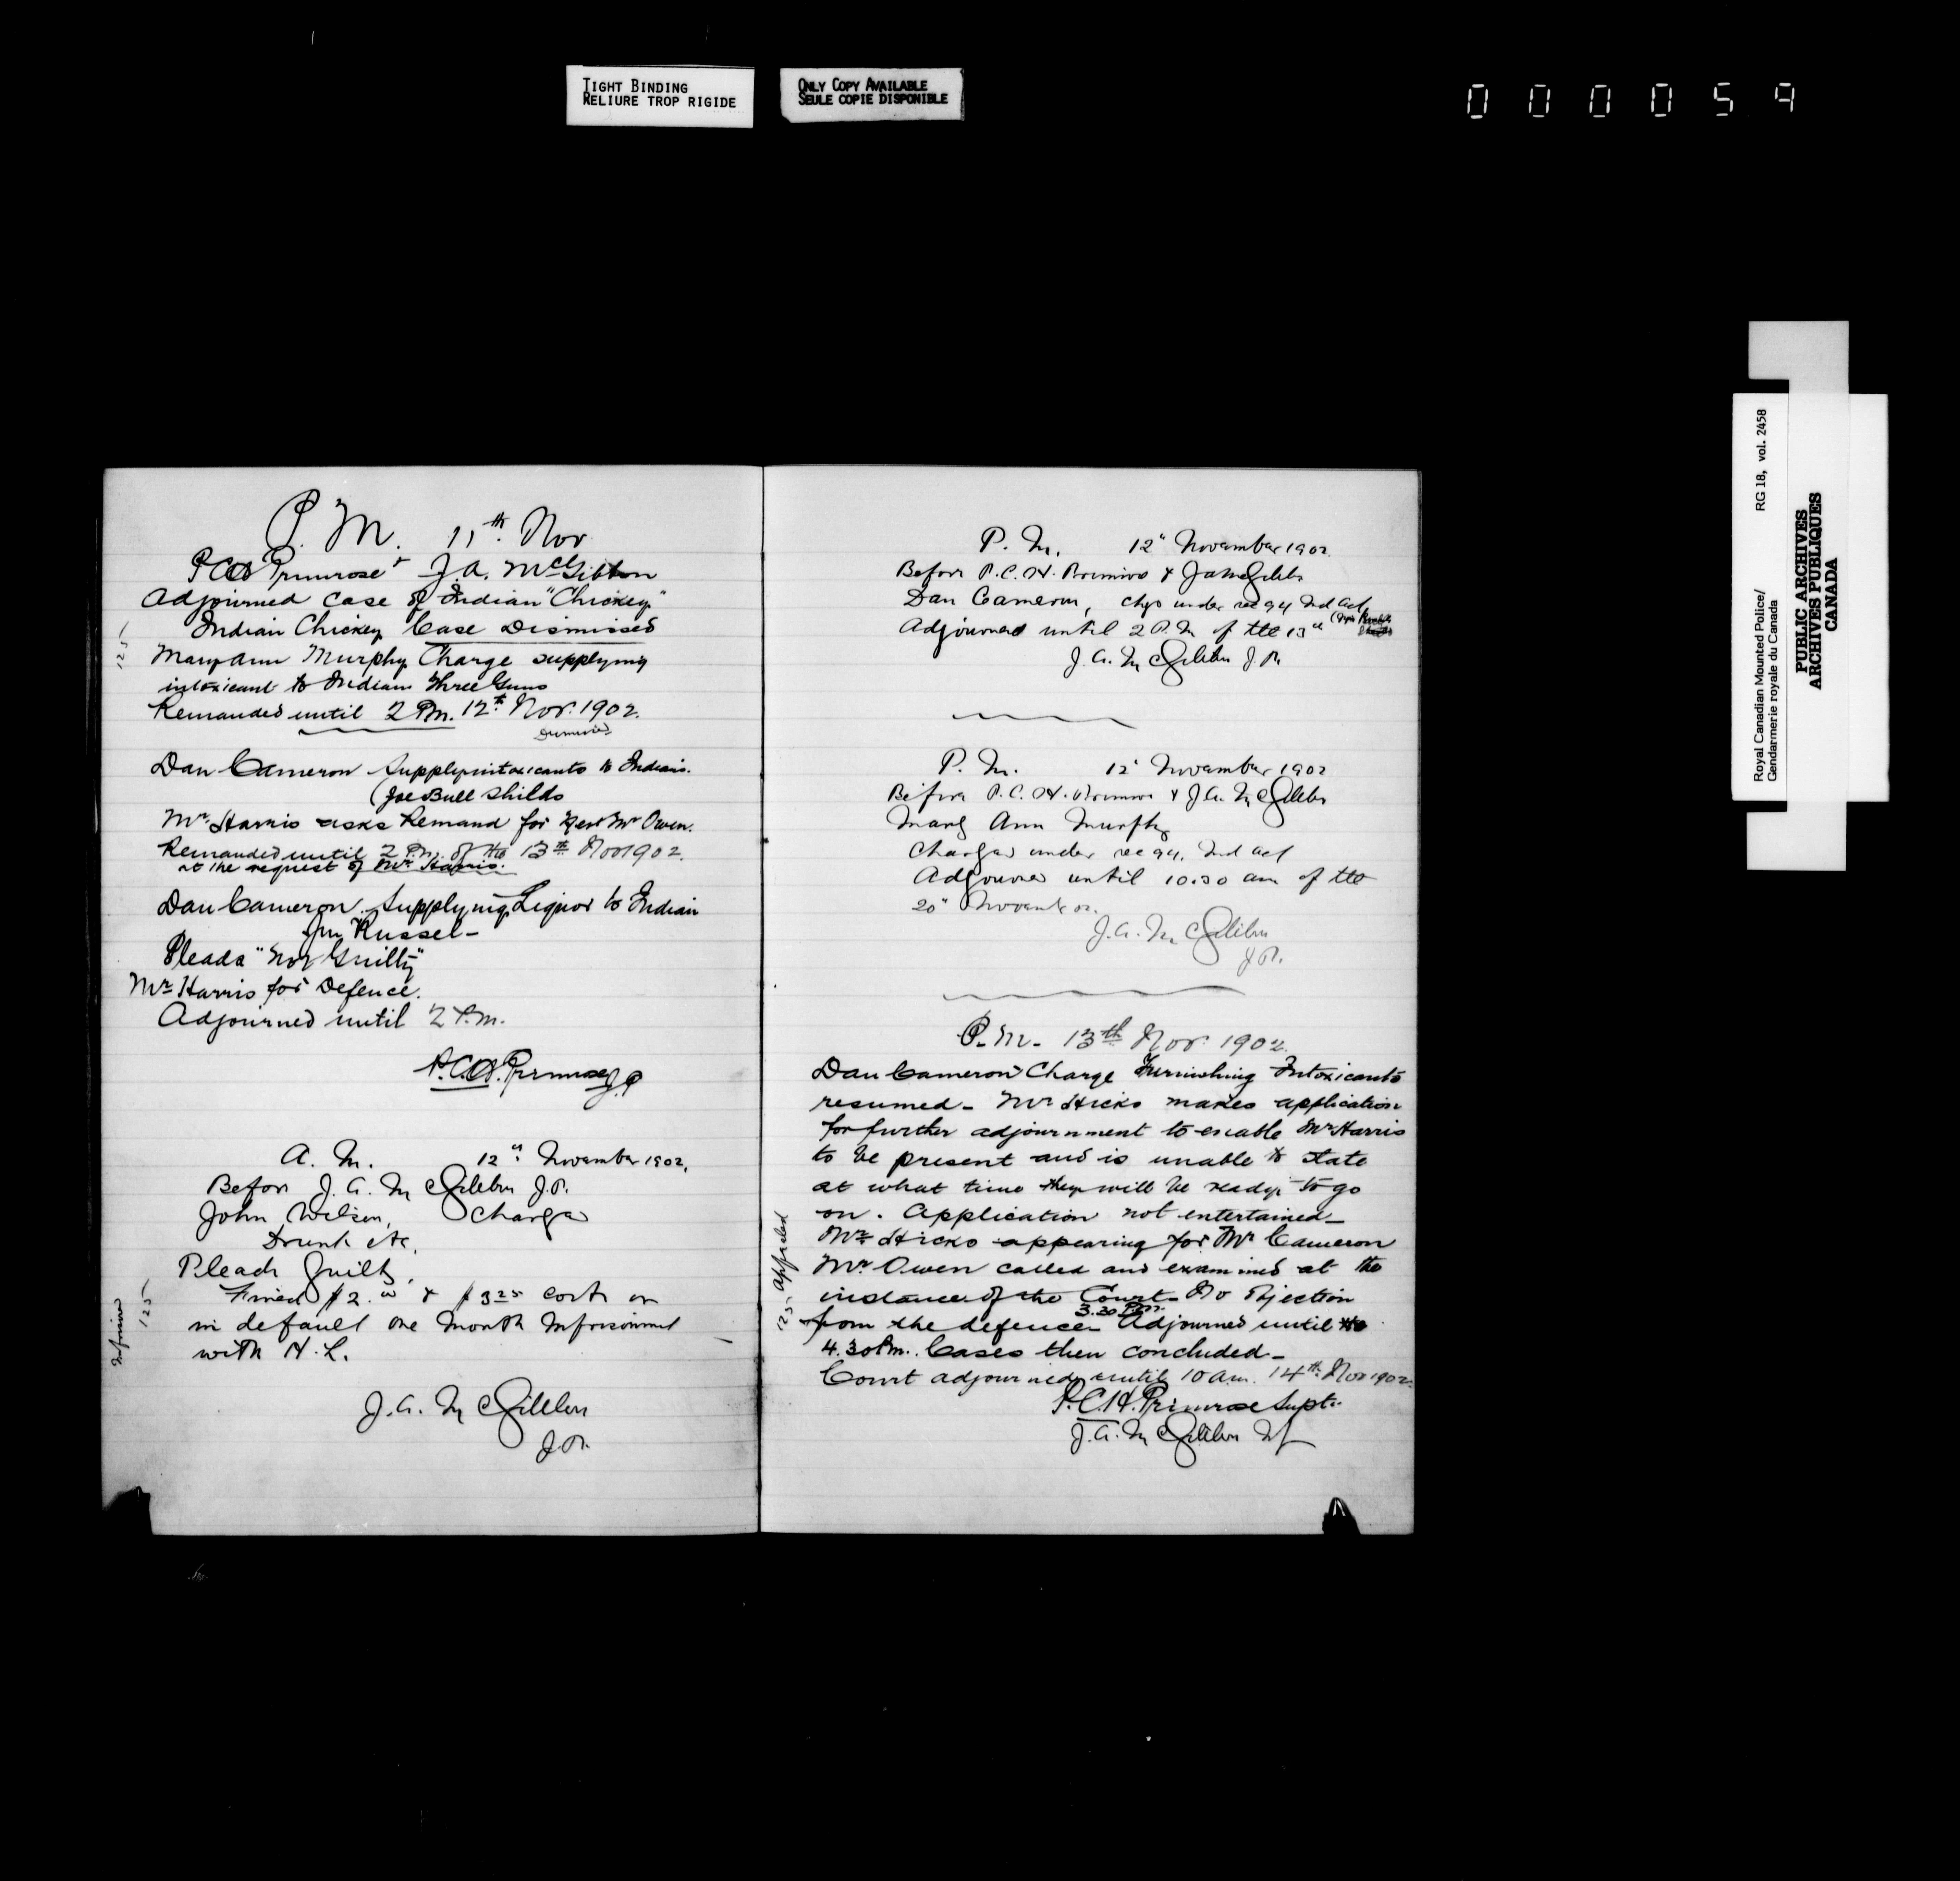 TIGHT BINDING
RELIURE TROP RIGIDE
ONLY COPY AVAILABLE
SEULE COPIE DISPONIBLE
000059
Royal Canadian Mounted Police/ RG 18, vol. 2458
Gendarmerie royale du Canada
PUBLIC ARCHIVES
ARCHIVES PUBLIQUES
CANADA
P. M. 11th Nov
P C H Primrose & J. A. McGibbon
Adjourned case of Indian "Chickey"
Indian Chickey Case Dismissed
125
Mary Ann Murphy Charge supplying
intoxicant to Indian Three Guns
Remanded until 2 Pm. 12th Nov. 1902.
Dan Cameron Supply intoxicants to Indians.
(Joe Bull Shields
Mr. Harris asks Remand for Mr Owen.
Remanded until 2 P.m. of the 13th Nov 1902.
at the request of Mr. Harris.
Dan Cameron. Supplying Liquor to Indian
Jim Russel -
Pleads "Not Guilty"
Mr Harris for Defence.
Adjourned until 2 P.m.
P.C.H. Primrose J.P
A. M. 12" November 1902,
Before J. A. McGibbon J.P.
John Wilson, Charge
Drunk etc,
Pleads Guilty,
Fined $2.00 & $3 25 costs or
in default one Month Imprisonment
with H. L.
125
J. A. McGibbon
J.P.
P. M. 12" November 1902
Before P. C. H. Primrose & J A McGibbon
Dan Cameron, chge under sec 94 Ind Act,
Adjourned until 2 P. M of the 13th
J. A. McGibbon J.P.
P. M. 12" November 1902
Before P. C. H. Primrose & J. A. McGibbon
Mary Ann Murphy
Charged under sec 94. Ind Act
Adjourned until 10.30 am of the
20"
J. A. McGibbon
J P.
P. M. 13th Nov. 1902.
Dan Cameron Charge Furnishing Intoxicants
resumed - Mr Hicks makes application
for further adjournment to enable Mr Harris
to be present and is unable to state
at what time they will be ready to go
on. Application not entertained -
Mr Hicks appearing for Mr Cameron
Mr Owen called and examined at the
instance of the Court - No Ojection
3.30 P.m.
from the defence - Adjourned until
4.30 Pm. Cases then concluded -
Court adjourned until 10 a.m. 14th Nov 1902.
125. appealed
P.C.H. Primrose Supt.
J. A. McGibbon